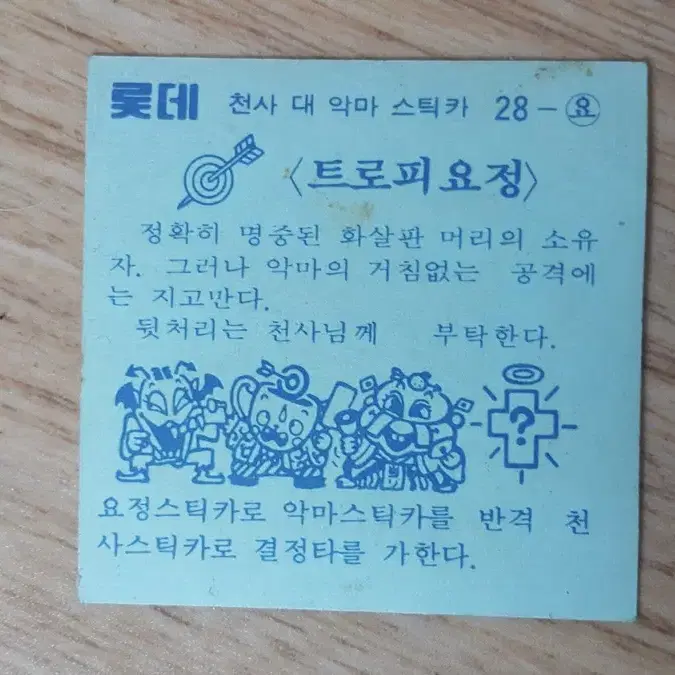 롯데 천사 대 악마 스틱카 28-㉿
〈트로피요정〉
정확히 명중된 화살판 머리의 소유
자. 그러나 악마의 거침없는 공격에
는 지고만다.
뒷처리는 천사님께 부탁한다.
?
요정스틱카로 악마스틱카를 반격 천
사스틱카로 결정타를 가한다.